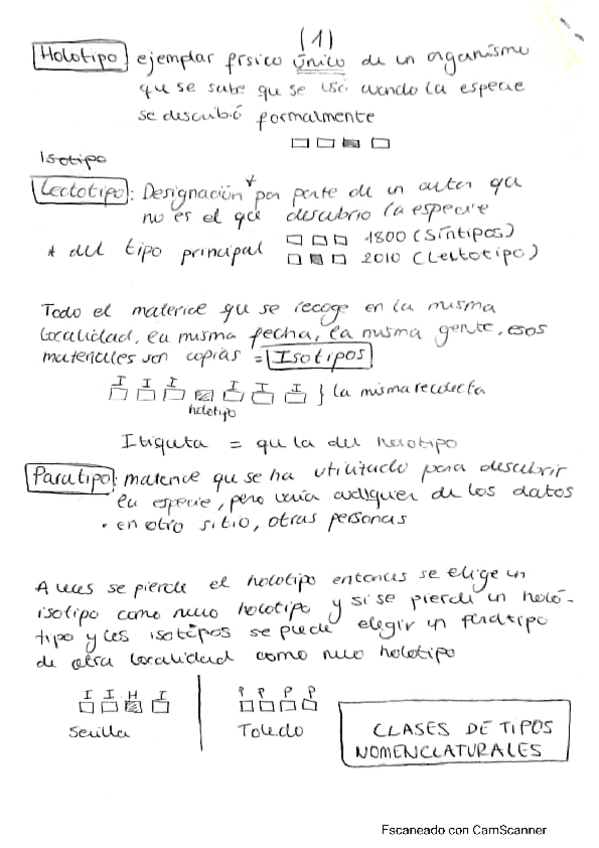 (1)
Holotipo: ejemplar físico único de un organismo
que se sabe que se usó cuando la especie
se describió formalmente
Isotipo
Lectotipo: Designación * por parte de un autor que
no es el que descubrio la especie
* del tipo principal
1800 (Síntipos)
2010 (Lectotipo)
Todo el material que se recoge en la misma
localidad, la misma fecha, la misma gente, esos
materiales son copias = Isotipos
I I I I I I } la misma recolecta
holotipo
Etiqueta = que la del holotipo
Paratipo: material que se ha utilizado para describir
la especie, pero varía cualquier de los datos
• en otro sitio, otras personas
A veces se pierde el holotipo entonces se elige un
isotipo como nuevo holotipo y si se pierde un holó-
tipo y los isotipos se puede elegir un paratipo
de otra localidad como nuevo holotipo
I I H I
Sevilla
P P P P
Toledo
CLASES DE TIPOS
NOMENCLATURALES
Escaneado con CamScanner